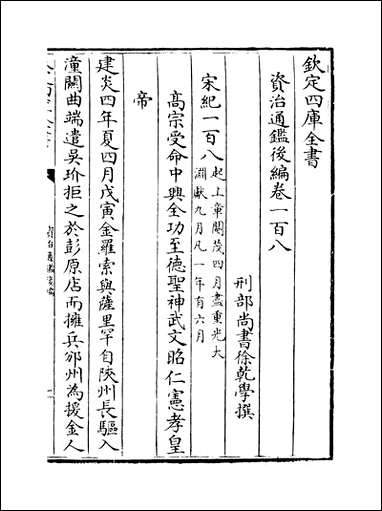 欽定四庫全書
資治通鑑後編卷一百八
刑部尚書徐乾學撰
宋紀一百八起上章閹茂四月盡重光大淵獻九月凡一年有六月
高宗受命中興全功至德聖神武文昭仁憲孝皇
帝
建炎四年夏四月戊寅金羅索與薩里罕自陜州長驅入
潼關曲端遣吳玠拒之於彭原店而擁兵邠州為援金人